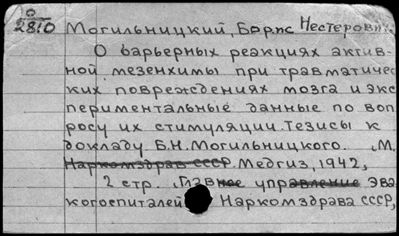 0
2810
Могильницкий, Борис Нестерович.
О барьерных реакциях актив-
ной мезенхимы при травматичес
ких повреждениях мозга и экс
периментальные данные по воп
росу их стимуляции. Тезисы к
докладу Б.Н. Могильницкого. М.
Наркомздрав СССР, Медгиз, 1942,
2 стр. Главное управление эва
когоспиталей Наркомздрава СССР,